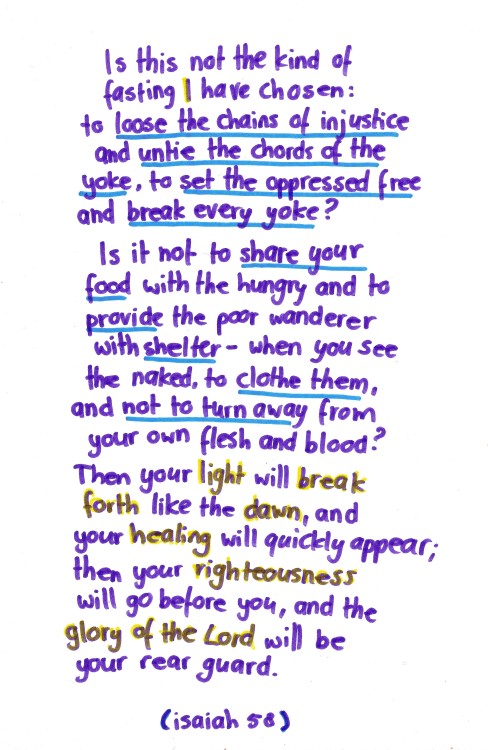 Is this not the kind of
fasting I have chosen:
to loose the chains of injustice
and untie the chords of the
yoke, to set the oppressed free
and break every yoke?
Is it not to share your
food with the hungry and to
provide the poor wanderer
with shelter - when you see
the naked, to clothe them,
and not to turn away from
your own flesh and blood?
Then your light will break
forth like the dawn, and
your healing will quickly appear;
then your righteousness
will go before you, and the
glory of the Lord will be
your rear guard.
(isaiah 58)